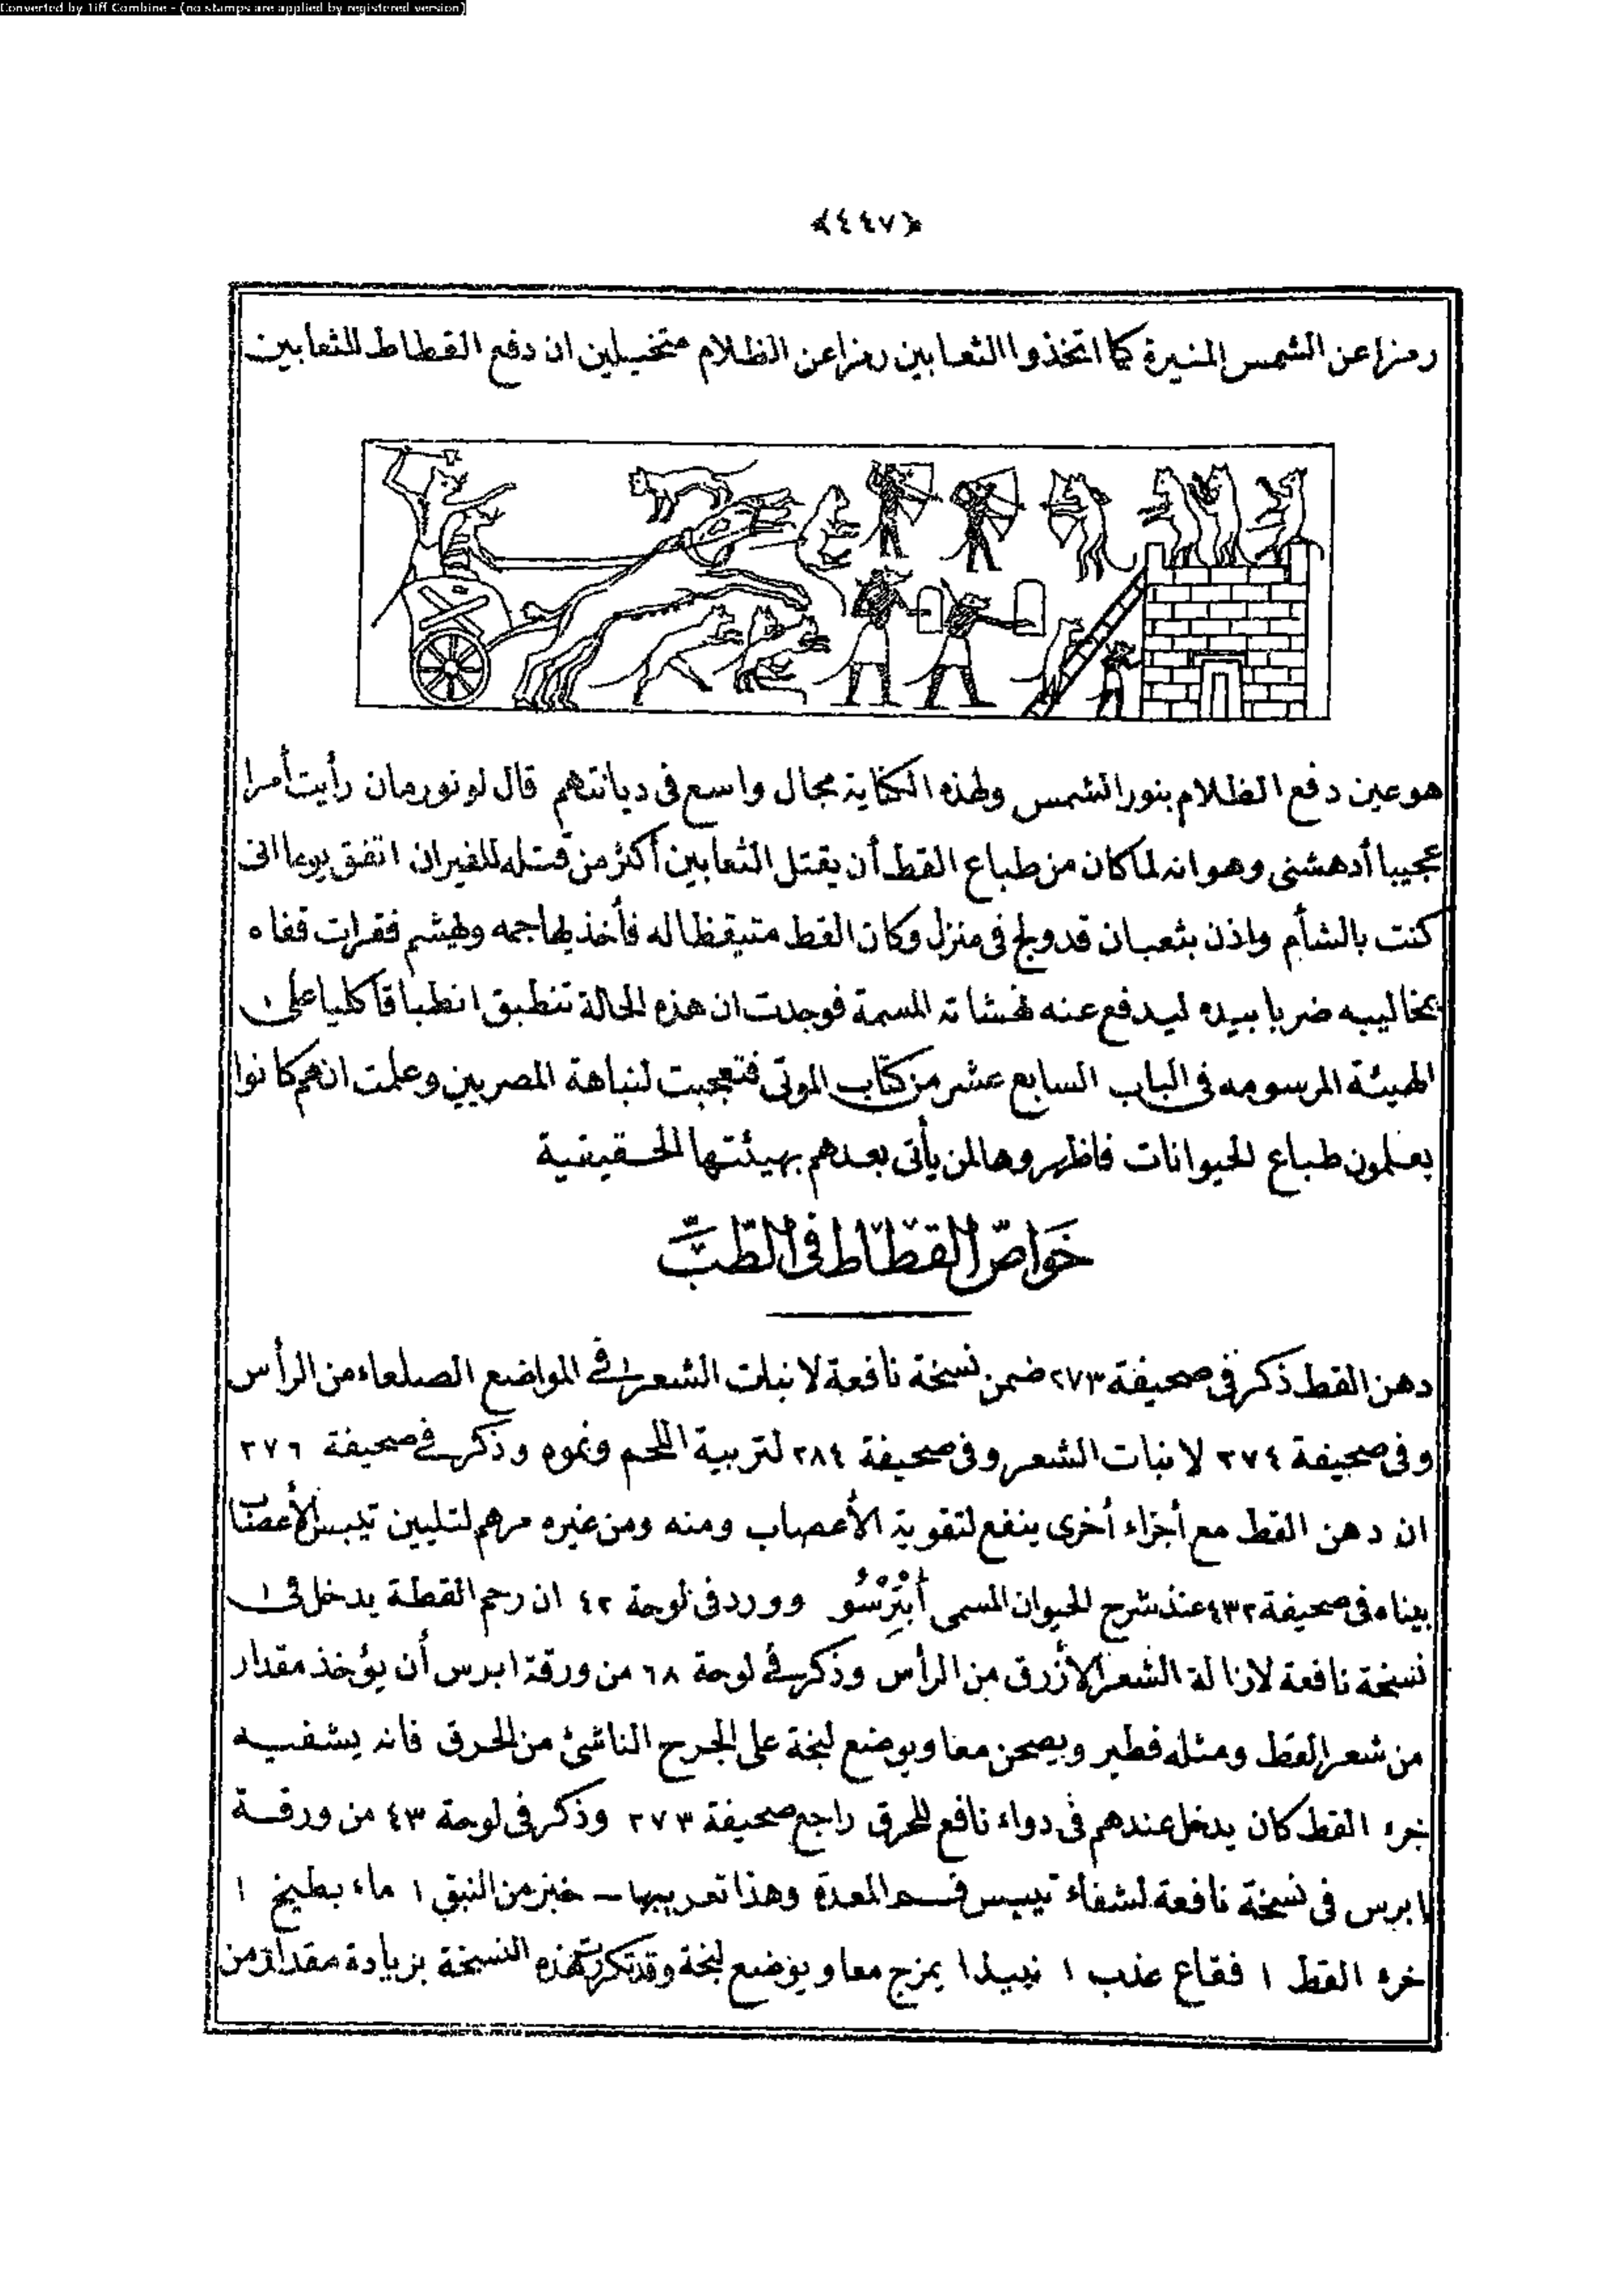 Converted by Tiff Combine - (no stamps are applied by registered version)
﴿٤٤٧﴾
رمزا عن الشمس المنيرة كما اتخذوا الثعابين رمزا عن الظلام متخيلين ان دفع القطاط للثعابين
هو عين دفع الظلام بنور الشمس ولهذه الكناية مجال واسع فى ديانتهم قال لونورمان رأيت أمرا
عجيبا أدهشنى وهو انه لما كان من طباع القط أن يقتل الثعابين أكثر من قتله للفيران اتفق يوما انى
كنت بالشأم واذن بثعبان قد ولج فى منزل وكان القط متيقظا له فأخذ يهاجمه ويهشم فقرات قفاه
بمخاليبه ضربا بيده ليدفع عنه نهشاته المسمة فوجدت ان هذه الحالة تنطبق انطباقا كليا على
الهيئة المرسومه فى الباب السابع عشر من كتاب الموتى فتعجبت لنباهة المصريين وعلمت انهم كانوا
يعلمون طباع الحيوانات فاظهروها لمن يأتى بعدهم بهيئتها الحقيقية
خَوَاصّ القطاط فى الطّبّ
دهن القط ذكر فى صحيفة ٢٧٣ ضمن نسخة نافعة لانبات الشعر فى المواضع الصلعاء من الرأس
وفى صحيفة ٢٧٤ لانبات الشعر وفى صحيفة ٢٨٤ لتربية اللحم ونموه وذكر فى صحيفة ٢٧٦
ان دهن القط مع أجزاء أخرى ينفع لتقوية الأعصاب ومنه ومن غيره مرهم لتليين تيبس الأعصاب
بيناه فى صحيفة ٤٣٢ عند شرح الحيوان المسمى أبْتَرْسُو وورد فى لوحة ٤٢ ان رحم القطة يدخل فى
نسخة نافعة لازالة الشعر الأزرق من الرأس وذكر فى لوحة ٦٨ من ورقة ابرس أن يؤخذ مقدار
من شعر القط ومثله فطير ويصحن معا ويوضع لبخة على الجرح الناشئ من الحرق فانه يشفيه
خرء القط كان يدخل عندهم فى دواء نافع للحرق راجع صحيفة ٢٧٣ وذكر فى لوحة ٤٣ من ورقة
ابرس فى نسخة نافعة لشفاء تيبس فم المعدة وهذا تعريبها - خبز من النبق ١ ماء بطيخ ١
خرء القط ١ فقاع عذب ١ نبيذ ١ يمزج معا ويوضع لبخة وقد تكررت هذه النسخة بزيادة مقدار من